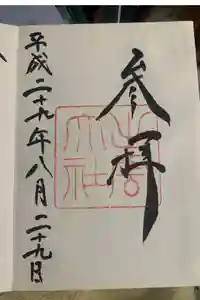 参拝
出雲
大社
平成二十九年八月二十九日